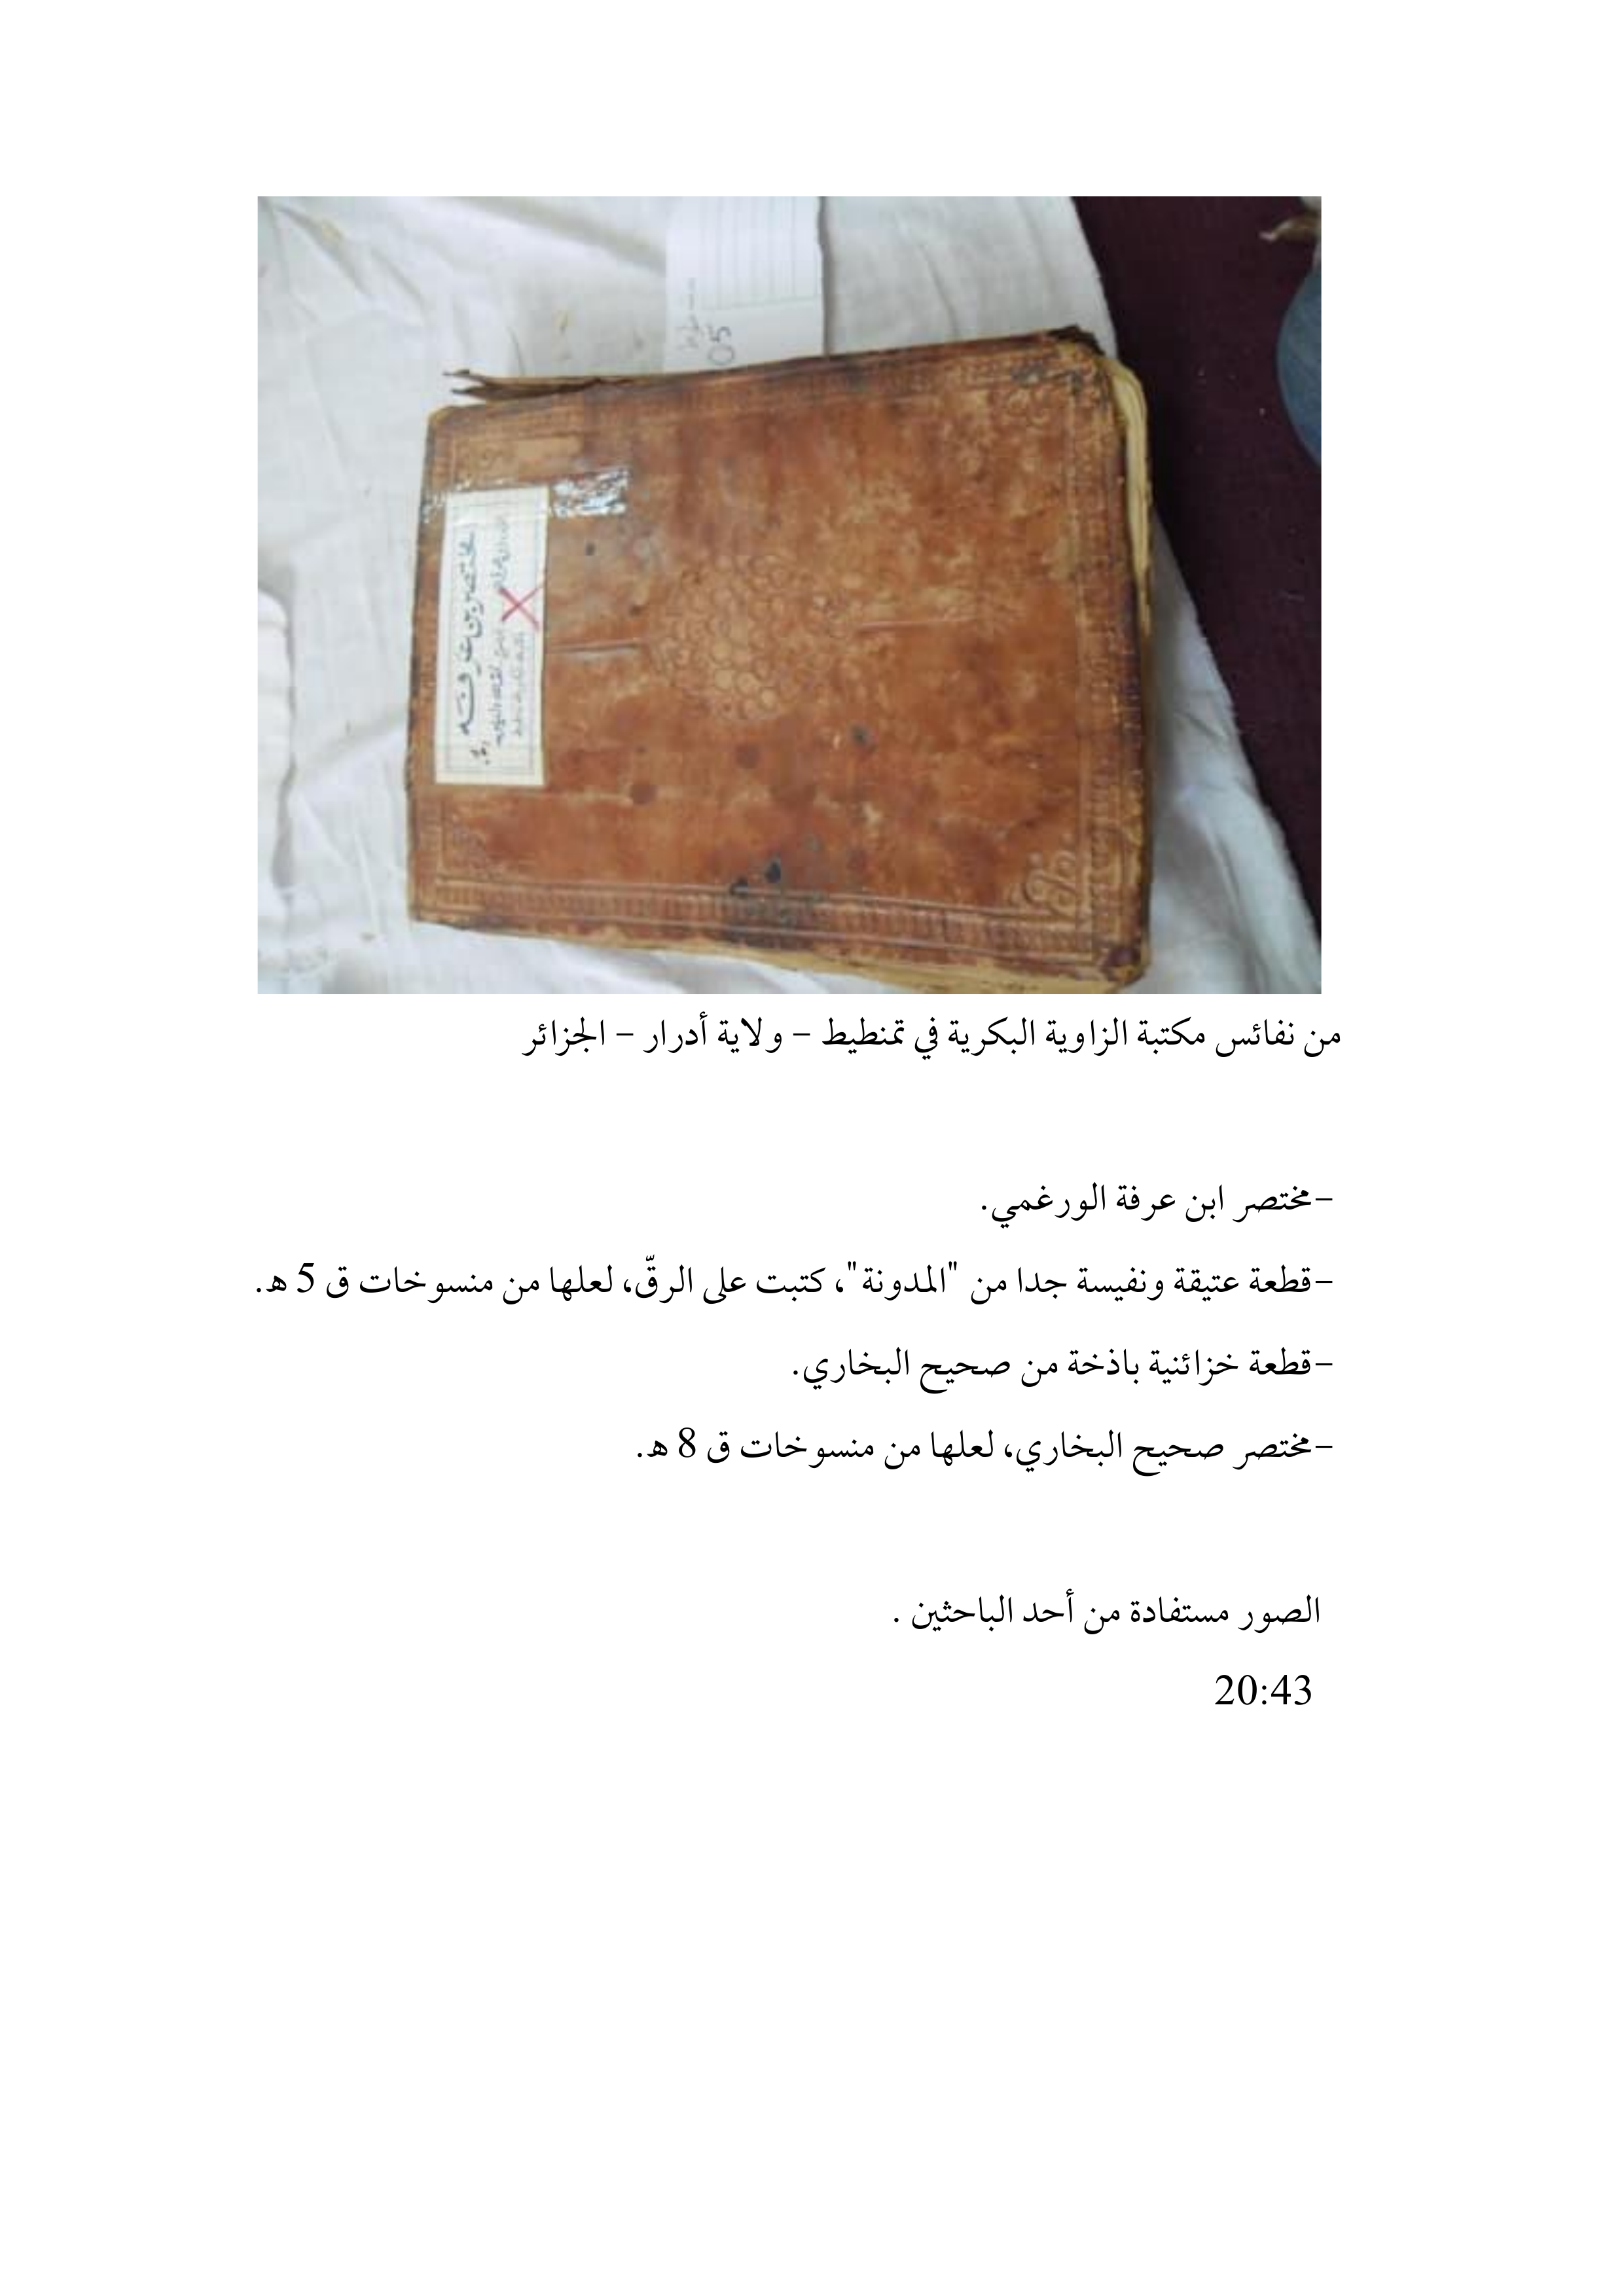 05
مختصر بن عرفه
من نفائس مكتبة الزاوية البكرية في تمنطيط – ولاية أدرار – الجزائر
–مختصر ابن عرفة الورغمي.
–قطعة عتيقة ونفيسة جدا من "المدونة"، كتبت على الرقّ، لعلها من منسوخات ق 5 هـ.
–قطعة خزائنية باذخة من صحيح البخاري.
–مختصر صحيح البخاري، لعلها من منسوخات ق 8 هـ.
الصور مستفادة من أحد الباحثين .
20:43